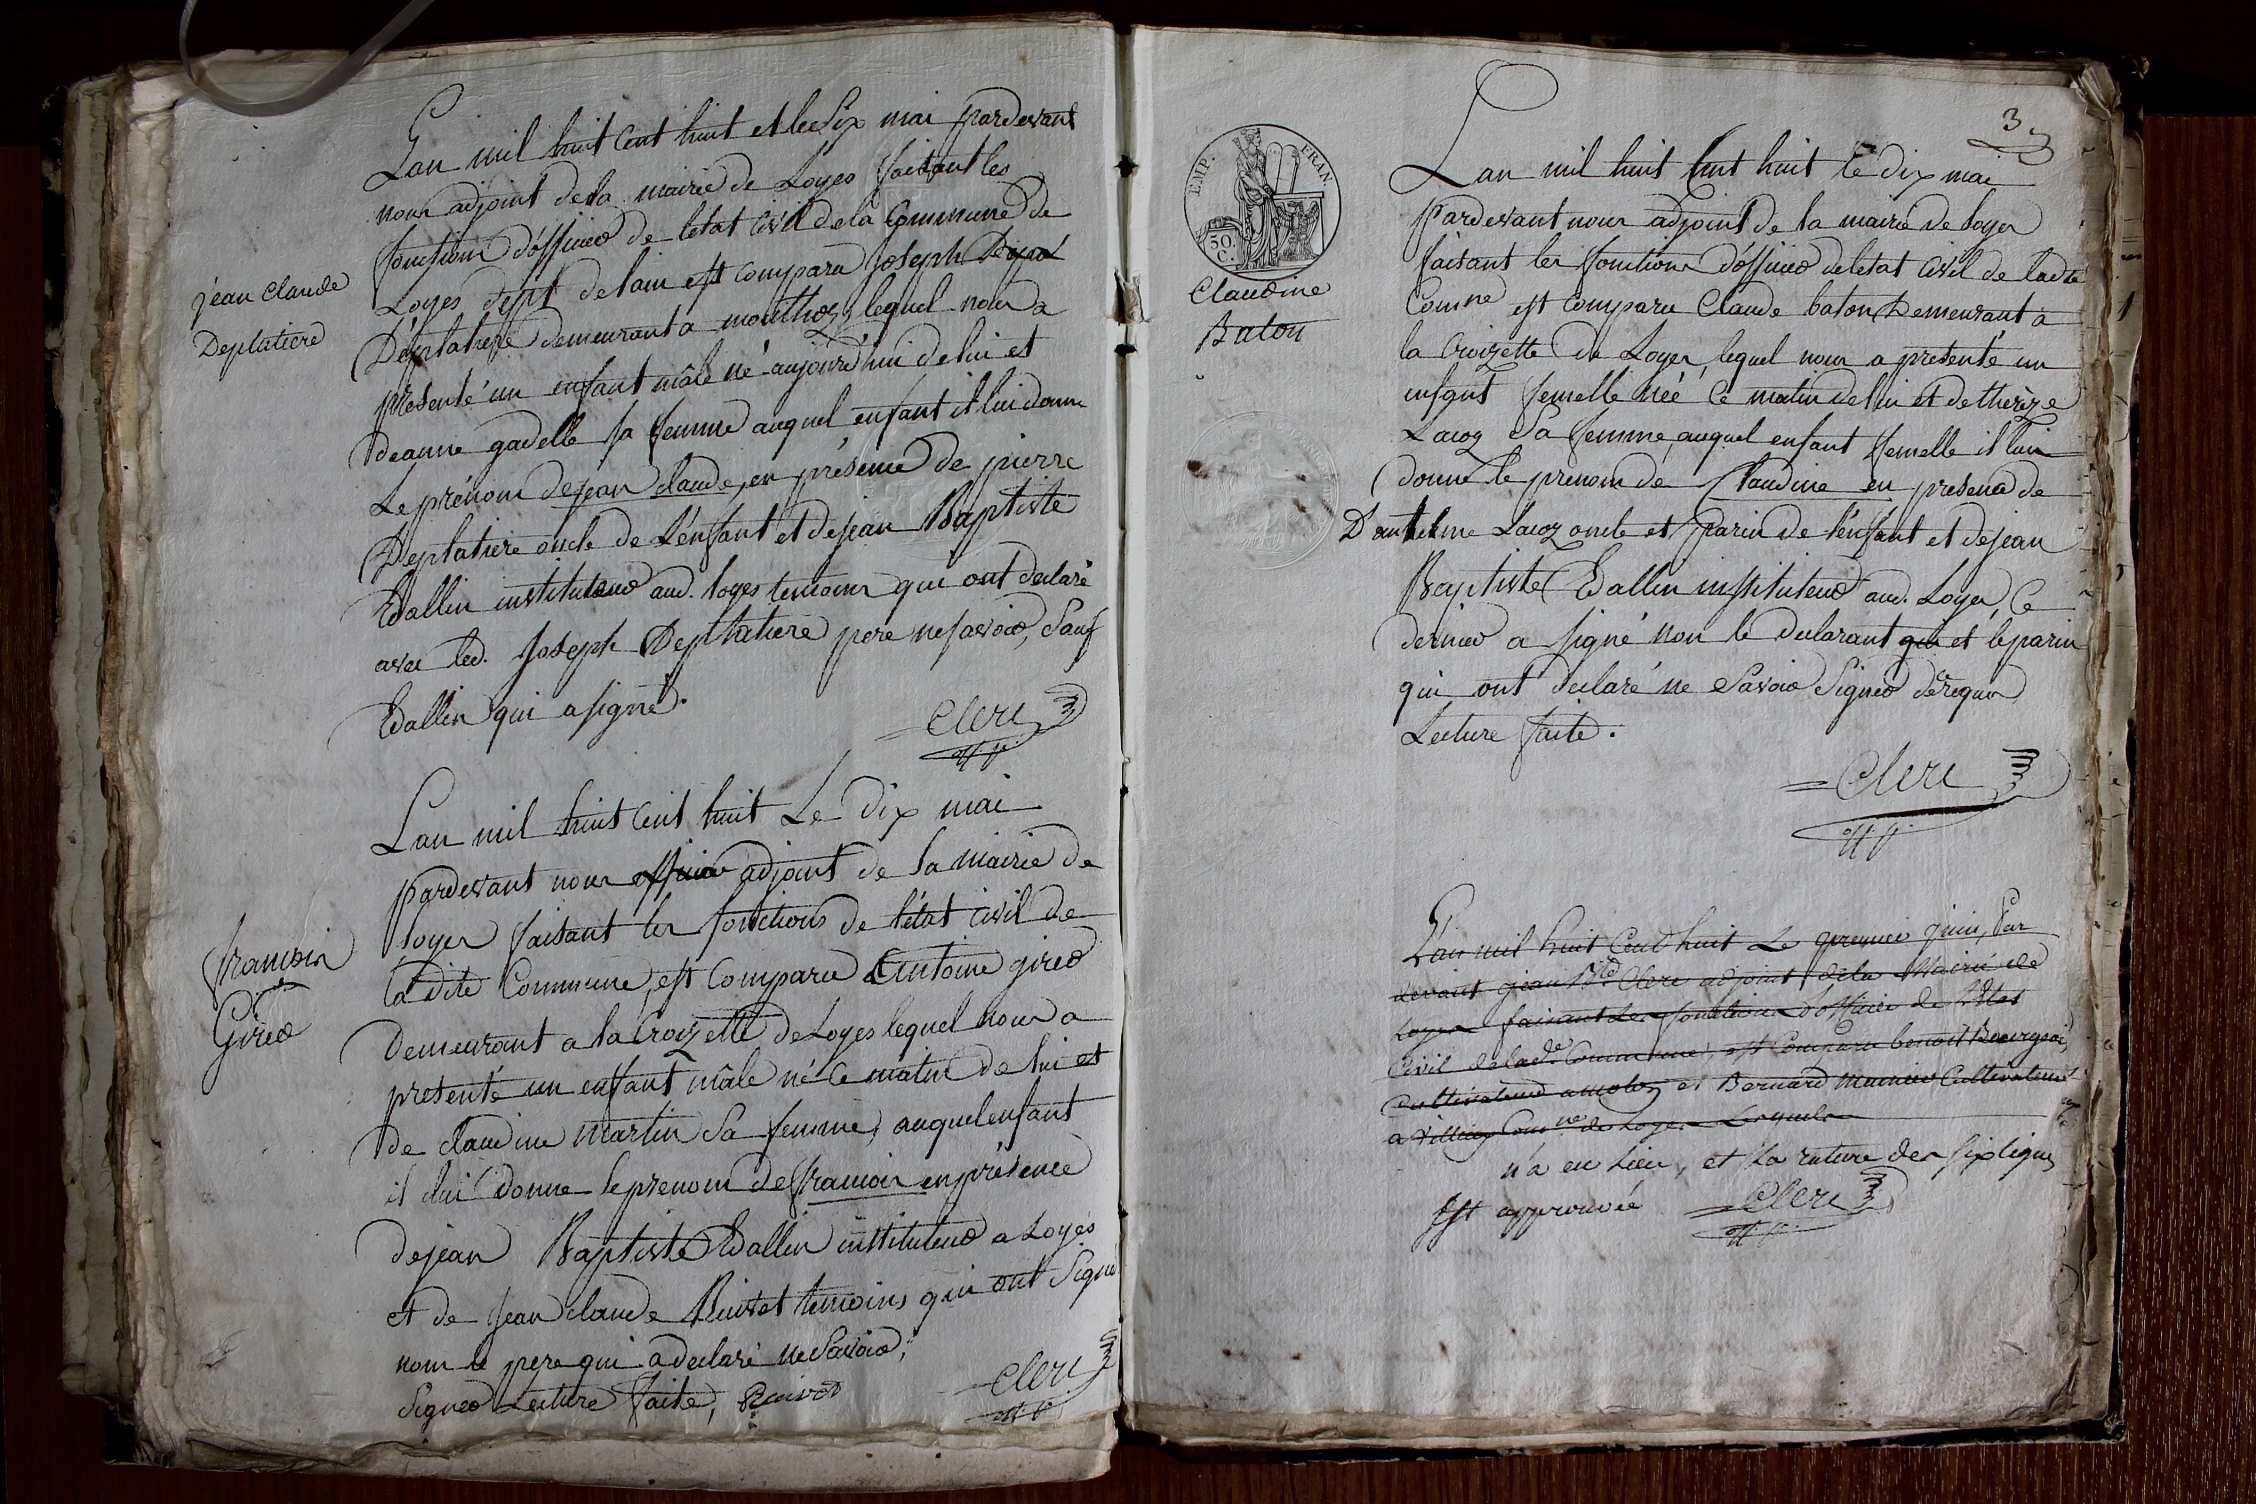 jean claude
Deplatiere
Lan mil huit Cent huit et le dix mai pardevant
nous adjoint de la mairie de Loyes faisant les
fonctions d'officier de letat civil de la Commune de
Loyes dept de lain est comparu Joseph
Déplatiere demeurant a mouthoz, lequel nous a
présenté un enfant mâle né aujourd'hui de lui et
deanne gadelle sa femme auquel enfant il lui donne
Le prénom de jean claude, en présence de pierre
Deplatiere oncle de L'enfant et de jean Baptiste
Vallin instituteur aud. Loyes temoins qui ont declaré
avec led. Joseph Deplatiere pere ne savoir, Sauf
Vallin qui a signé.
Clerc
françois
Girer
Lan mil huit cent huit Le dix mai
pardevant nous officier adjoint de la mairie de
loyes faisant les fonctions de l'état civil de
la dite Commune, est comparu Antoine girer
Demeurant a la Croizette de Loyes lequel nous a
présenté un enfant mâle né ce matin de lui et
de claudine Martin Sa femme, auquel enfant
il lui donne le prenom de françois en présence
de jean Baptiste Vallin instituteur a Loyes
et de Jean claude Ruivet temoins qui ont Signé
non le pere qui a declaré ne Savoir,
Signer Lecture faite, Ruivet
Clerc
3
EMP. FRAN.
50. C.
Claudine
Baton
Lan mil huit Cent huit le dix mai
Pardevant nous adjoint de la mairie de loyes
faisant les fonctions d'officier de letat Civil de ladte
Comne est comparu Claude baton Demeurant a
la Croizette de Loyes, lequel nous a présenté un
enfant femelle née ce matin de lui et de thérèze
Lacoz Sa femme, auquel enfant femelle il lui
donne le prenom de Claudine en presence de
D'antelme Lacoz oncle et parin de l'enfant et de jean
Baptiste Vallin instituteur aud. Loyes, Ce
dernier a signé non le declarant qui et le parin
qui ont declaré ne Savoir Signer de requis
Lecture faite.
Clerc
L'an mil huit Cent huit Le premier juin, Par
devant jean Bte Clerc adjoint de la Mairie de
Loyes faisant les fonctions d'officier de l'Etat
Civil de lade Commune, est Comparu benoit Bourgeois,
Cultivateur a et Bernard Cultivateur
a Comne de Loyes Lesquels
n'a eu lieu, et la rature des six lignes
Est approuvée Clerc